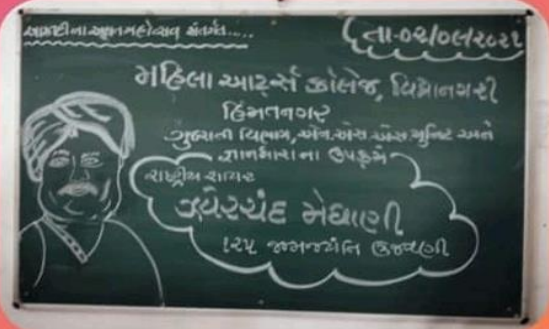 આઝાદીના અમૃતમહોત્સવ અંતર્ગત.....
તા-૦૨/૦૯/૨૦૨૧
મહિલા આર્ટ્સ કૉલેજ, વિદ્યાનગરી
હિંમતનગર
ગુજરાતી વિભાગ, એન.એસ.એસ યુનિટ અને
જ્ઞાનધારાના ઉપક્રમે
રાષ્ટ્રીય શાયર
ઝવેરચંદ મેઘાણી
૧૨૫ જન્મજયંતિ ઉજવણી